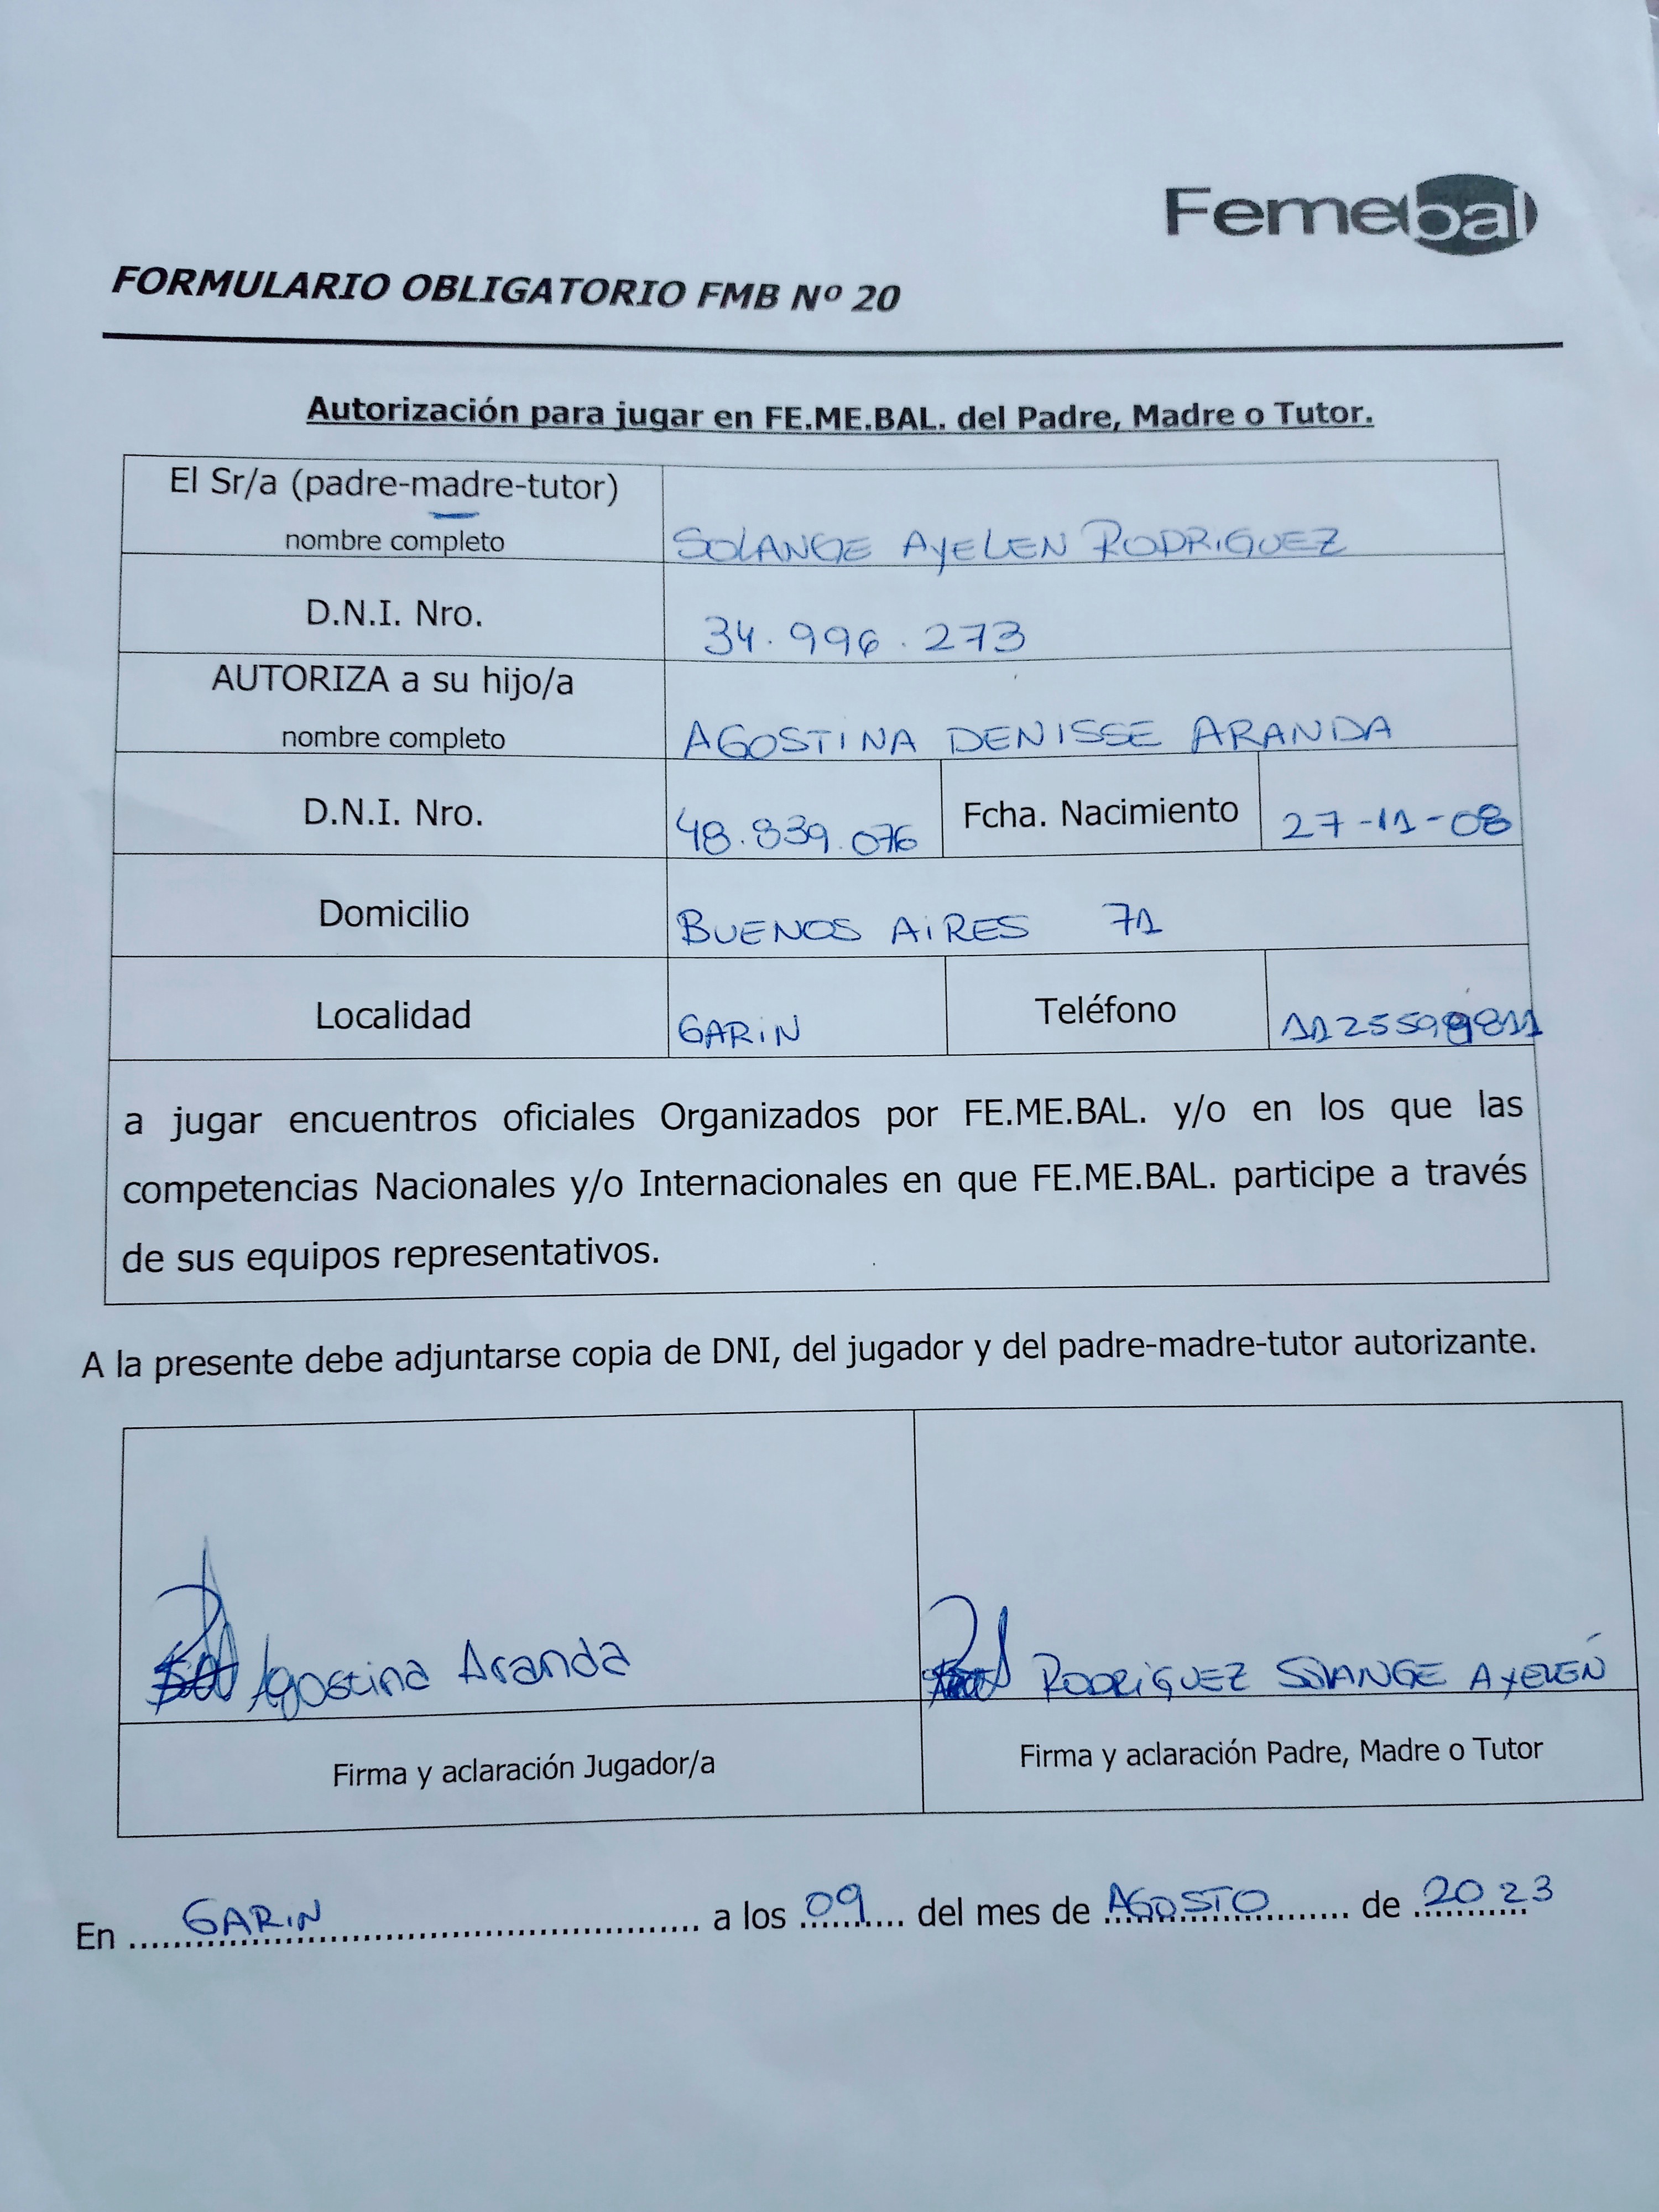 Femebal
FORMULARIO OBLIGATORIO FMB Nº 20
Autorización para jugar en FE.ME.BAL. del Padre, Madre o Tutor.
El Sr/a (padre-madre-tutor)
nombre completo
SOLANGE AYELEN RODRIGUEZ
D.N.I. Nro.
34.996.273
AUTORIZA a su hijo/a
nombre completo
AGOSTINA DENISSE ARANDA
D.N.I. Nro.
48.839.076
Fcha. Nacimiento
27-11-08
Domicilio
BUENOS AIRES 71
Localidad
GARIN
Teléfono
a jugar encuentros oficiales Organizados por FE.ME.BAL. y/o en los que las
competencias Nacionales y/o Internacionales en que FE.ME.BAL. participe a través
de sus equipos representativos.
A la presente debe adjuntarse copia de DNI, del jugador y del padre-madre-tutor autorizante.
Agostina Aranda
RODRIGUEZ SOLANGE AYELEN
Firma y aclaración Jugador/a
Firma y aclaración Padre, Madre o Tutor
En GARIN a los 09 del mes de AGOSTO de 2023